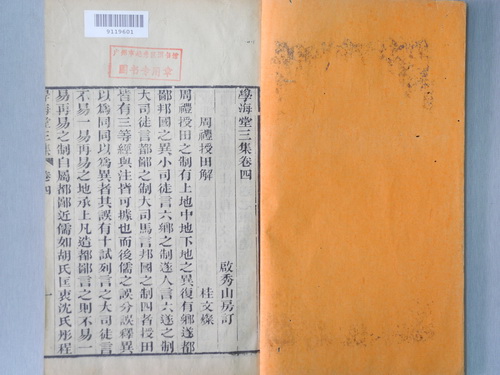 9119601
图书专用章
學海堂三集卷四
啟秀山房訂
周禮授田解
桂文燦
周禮授田之制有上地中地下地之異復有鄉遂都
鄙邦國之異小司徒言六鄉之制遂人言六遂之制
大司徒言都鄙之制大司馬言邦國之制四者授田
皆有三等經與注皆可據也而後儒之誤分誤釋異
以為同同以為異者其誤有十試列言之大司徒言
不易一易再易之地承上凡造都鄙言之則不易一
易再易之制自屬都鄙近儒如胡氏匡衷沈氏彤程
學海堂三集 卷四
一